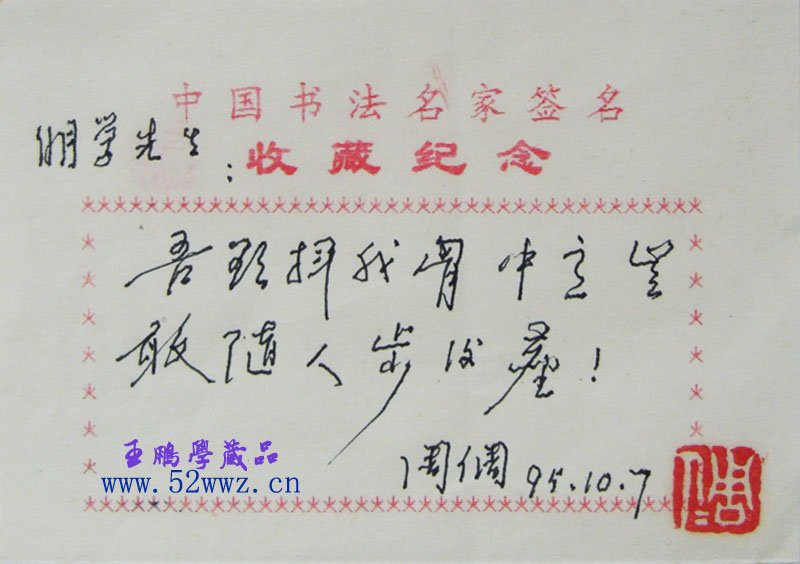 中国书法名家签名
倗学先生：
收藏纪念
吾欲抒我胷中意岂
敢随人步后塵！
王鵬學藏品
周倜 95.10.7
www.52wwz.cn
周倜